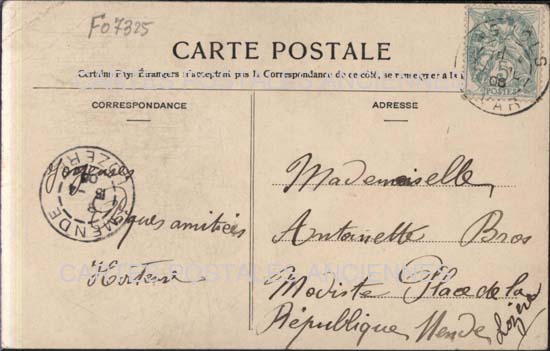 F07325
CARTE POSTALE
Certains Pays Étrangers n'acceptant pas la Correspondance de ce côté, se renseigner à la
CORRESPONDANCE
ADRESSE
Joyeuses
Pâques amitiés
Hortense
MENDE
LOZERE
POSTES
Mademoiselle
Antoinette Bros
Modiste Place de la
République Mende
Lozère
CARTES POSTALES ANCIENNES